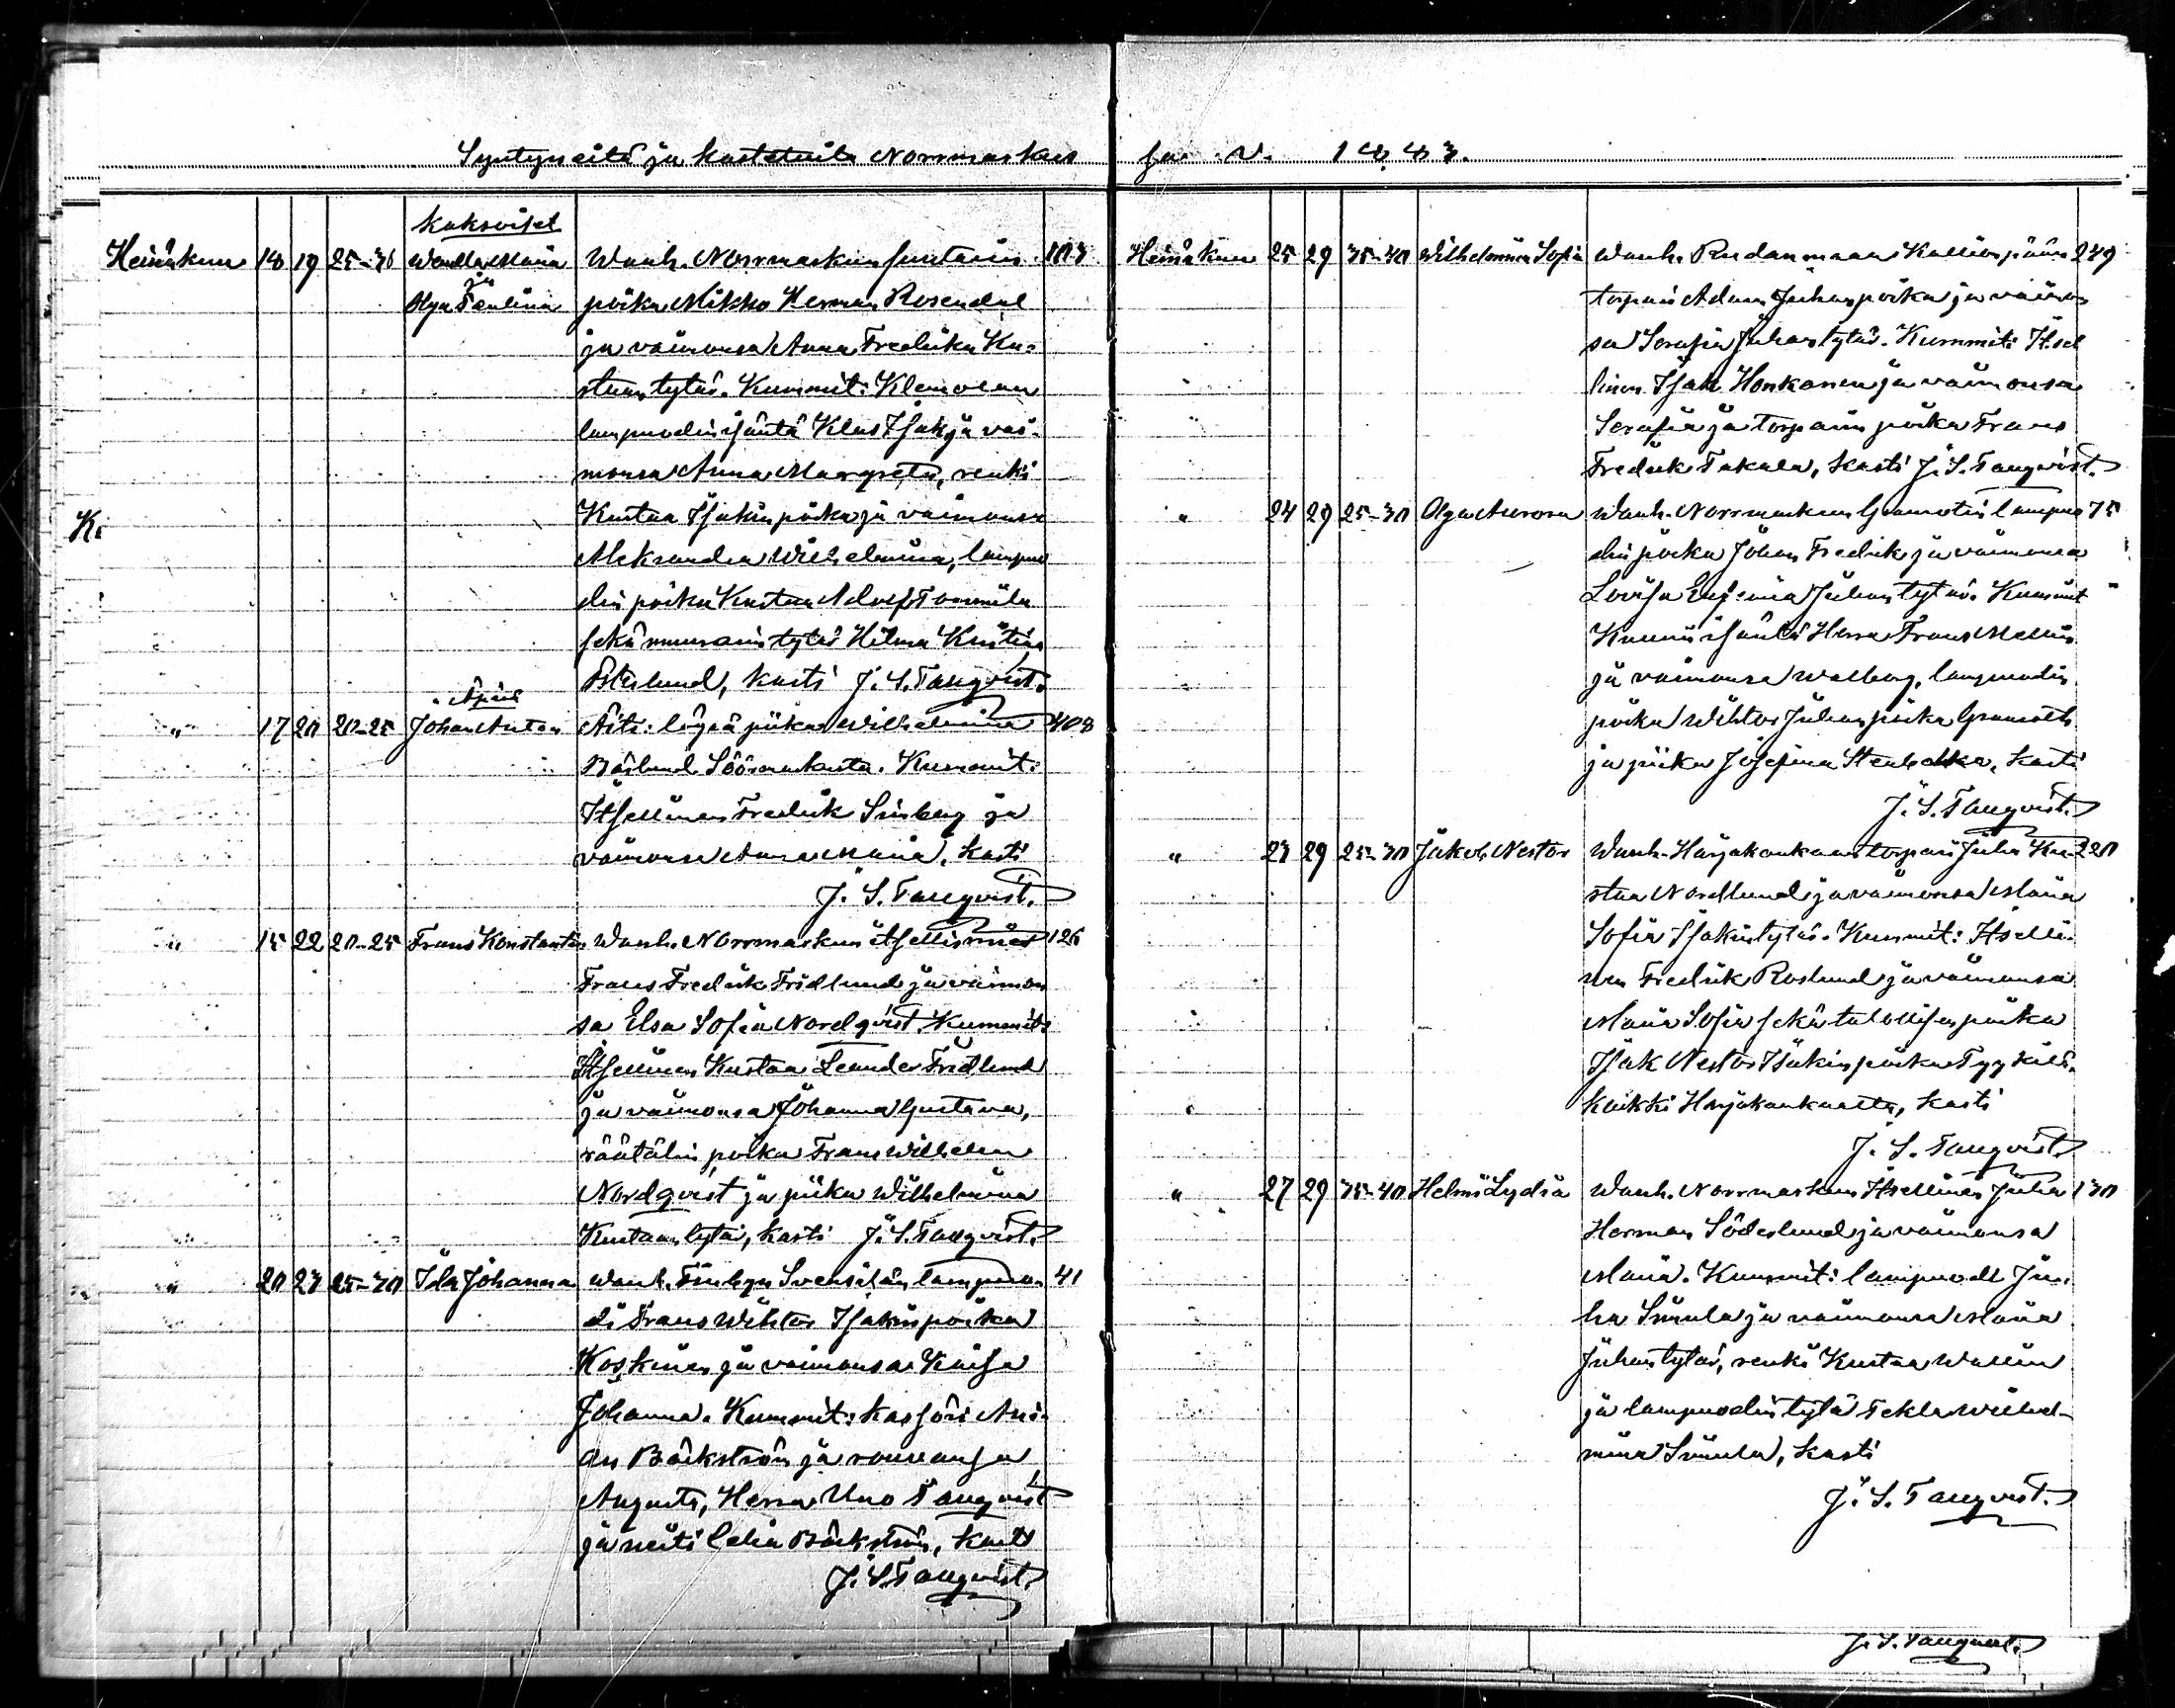 Syntyneitä ja kastetuita Norrmarkus
sa v. 1883.
kaksoiset
Heinäkuu 18 19 25-30 Wendla Maria Wanh. Norrmarkun suntarin 103
ja
Olga Paulina poika Mikko Herman Rosendal
ja vaimonsa Anna Fredrika Ku-
staan tytär. Kummit: Klemolan
lampuodin isäntä Klas Isak ja vai-
monsa Anna Margreta, renki
Kustaa Isakin poika ja vaimonsa
Aleksandra Wilhelmina, lampuo
din poika Kustaa Adolf Tommila
sekä muurarin tytär Hilma Kristina
Österlund, kasti J. S. Tanqvist.
Äpärä
" 17 20 20-25 Johan Anton Äiti: löysä piika Wilhelmina 408
Söörmarkusta. Kummit:
Itsellinen Fredrik Sinberg ja
vaimonsa Anna Maria, kasti
J. S. Tanqvist.
" 15 22 20-25 Frans Konstantin Wanh. Norrmarkun itsellismies 126
Frans Fredrik Fridlund ja vaimon
sa Elsa Sofia Nordqvist. Kummit:
Itsellinen Kustaa Leander Fridlund
ja vaimonsa Johanna Gustava,
räätälin poika Frans Wilhelm
Nordqvist ja piika Wilhelmina
Kustaan tytär, kasti J. S. Tanqvist.
" 20 23 25-30 Ida Johanna Wanh. lampuo 41
di Frans Wihtor Isakin poika
Koskinen ja vaimonsa Kaisa
Johanna. Kummit:
Bäckström ja vaimonsa
Augusta, Herra Uno Tanqvist
ja neiti Bäckström, kasti
J. S. Tanqvist.
Heinäkuu 25 29 35-40 Wilhelmina Sofia Wanh. Kallionpään 249
torpari Adam Juhan poika ja vaimon
sa Serafia Juhan tytär. Kummit: Itsel
linen Isak Honkanen ja vaimonsa
Serafia ja torparin poika Frans
Fredrik Takala, kasti J. S. Tanqvist.
" 24 29 25-30 Olga Aurora Wanh. Norrmarkun lampuo 75
din poika Johan Fredrik ja vaimonsa
Lovisa Eufemia Juhan tytär. Kummit
isäntä Herra Frans Mellin
ja vaimonsa Walborg, lampuodin
poika Wihtor Juhan poika
ja piika Josefina, kasti
J. S. Tanqvist.
" 23 29 25-30 Jakob Nestor Wanh. Harjakankaan torpari Juha Ku- 220
staa Nordlund ja vaimonsa Maria
Sofia Isakin tytär. Kummit: Itselli-
nen Fredrik Roslund ja vaimonsa
Maria Sofia sekä talollisen poika
Isak Nestor Isakin poika
kaikki Harjakankaasta, kasti
J. S. Tanqvist.
" 27 29 35-40 Helmi Lydia Wanh. Norrmarkun Itsellinen Juha 130
Herman Söderlund ja vaimonsa
Maria. Kummit: lampuodi Ju-
ha Simula ja vaimonsa Maria
Juhan tytär, renki Kustaa Wallin
ja lampuodin tytär Tekla Wilhel-
mina Simula, kasti
J. S. Tanqvist.
J. S. Tanqvist.